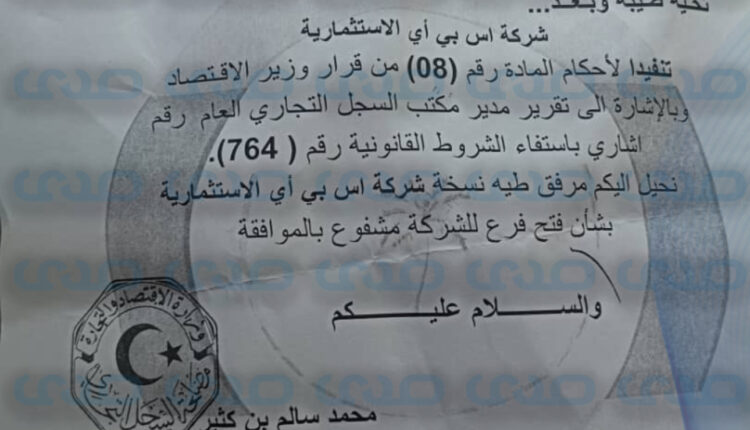 تحية طيبة وبعـد...
شركة اس بي أي الاستثمارية
تنفيدا لأحكام المادة رقم (08) من قرار وزير الاقتصاد
وبالإشارة الى تقرير مدير مكتب السجل التجاري العام رقم
اشاري باستفاء الشروط القانونية رقم ( 764).
نحيل اليكم مرفق طيه نسخة شركة اس بي أي الاستثمارية
بشأن فتح فرع للشركة مشفوع بالموافقة
والســـــلام عليـــــــكم
وزارة الاقتصاد والتجارة
مصلحة السجل التجاري
محمد سالم بن كثير
صدى